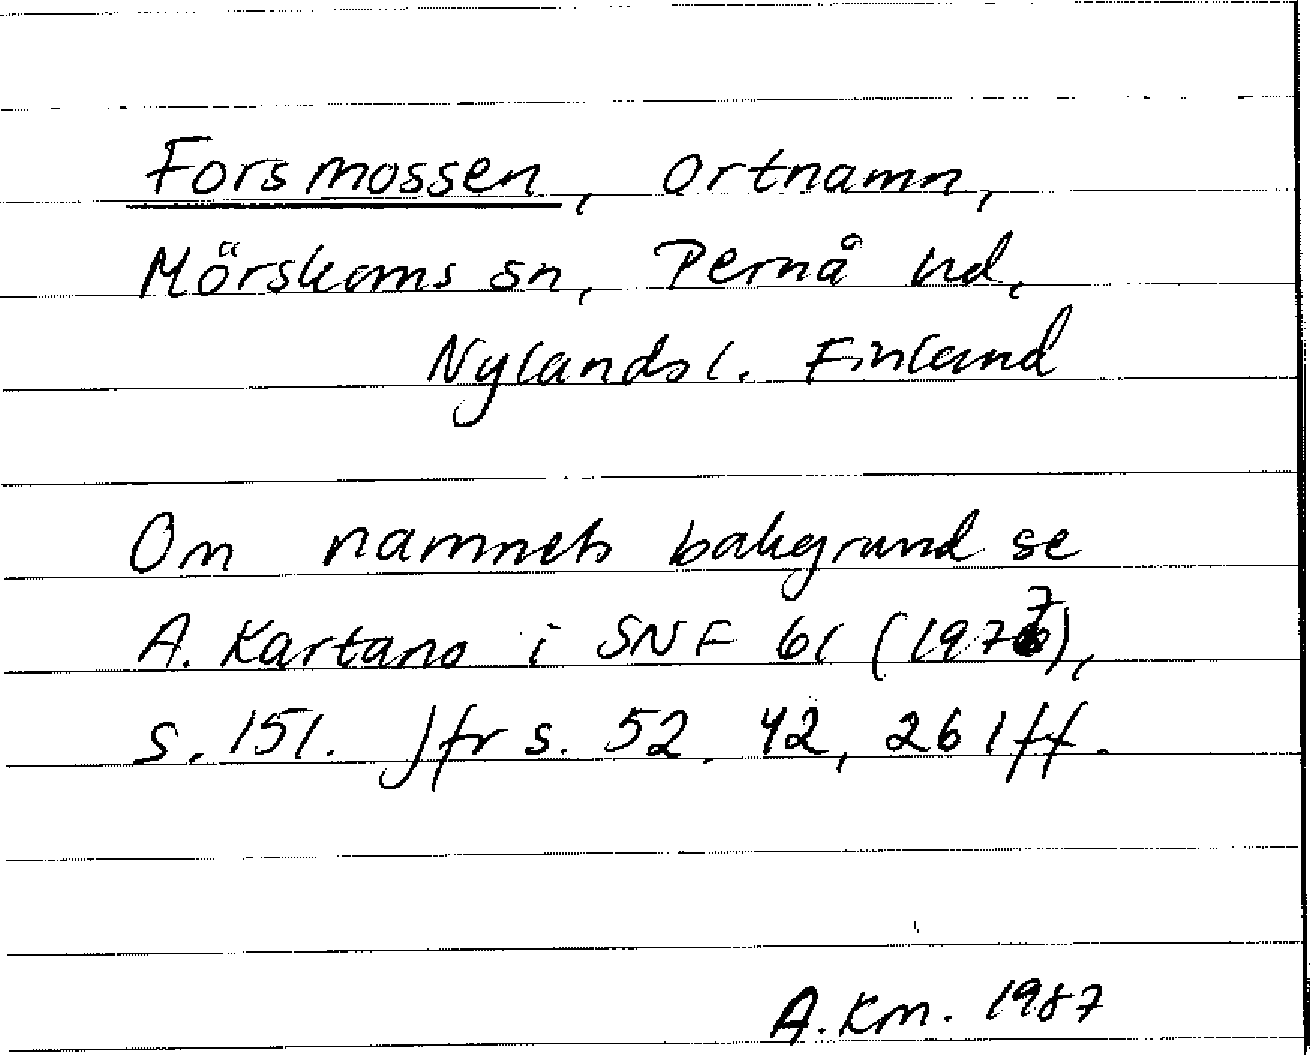 Forsmossen, ortnamn,
Mörskoms sn, Pernå hd,
Nylands l. Finland
Om namnets bakgrund se
A. Kartano i SNF 61 (1977),
s. 151. Jfr s. 52, 42, 261 ff.
A.Km. 1987